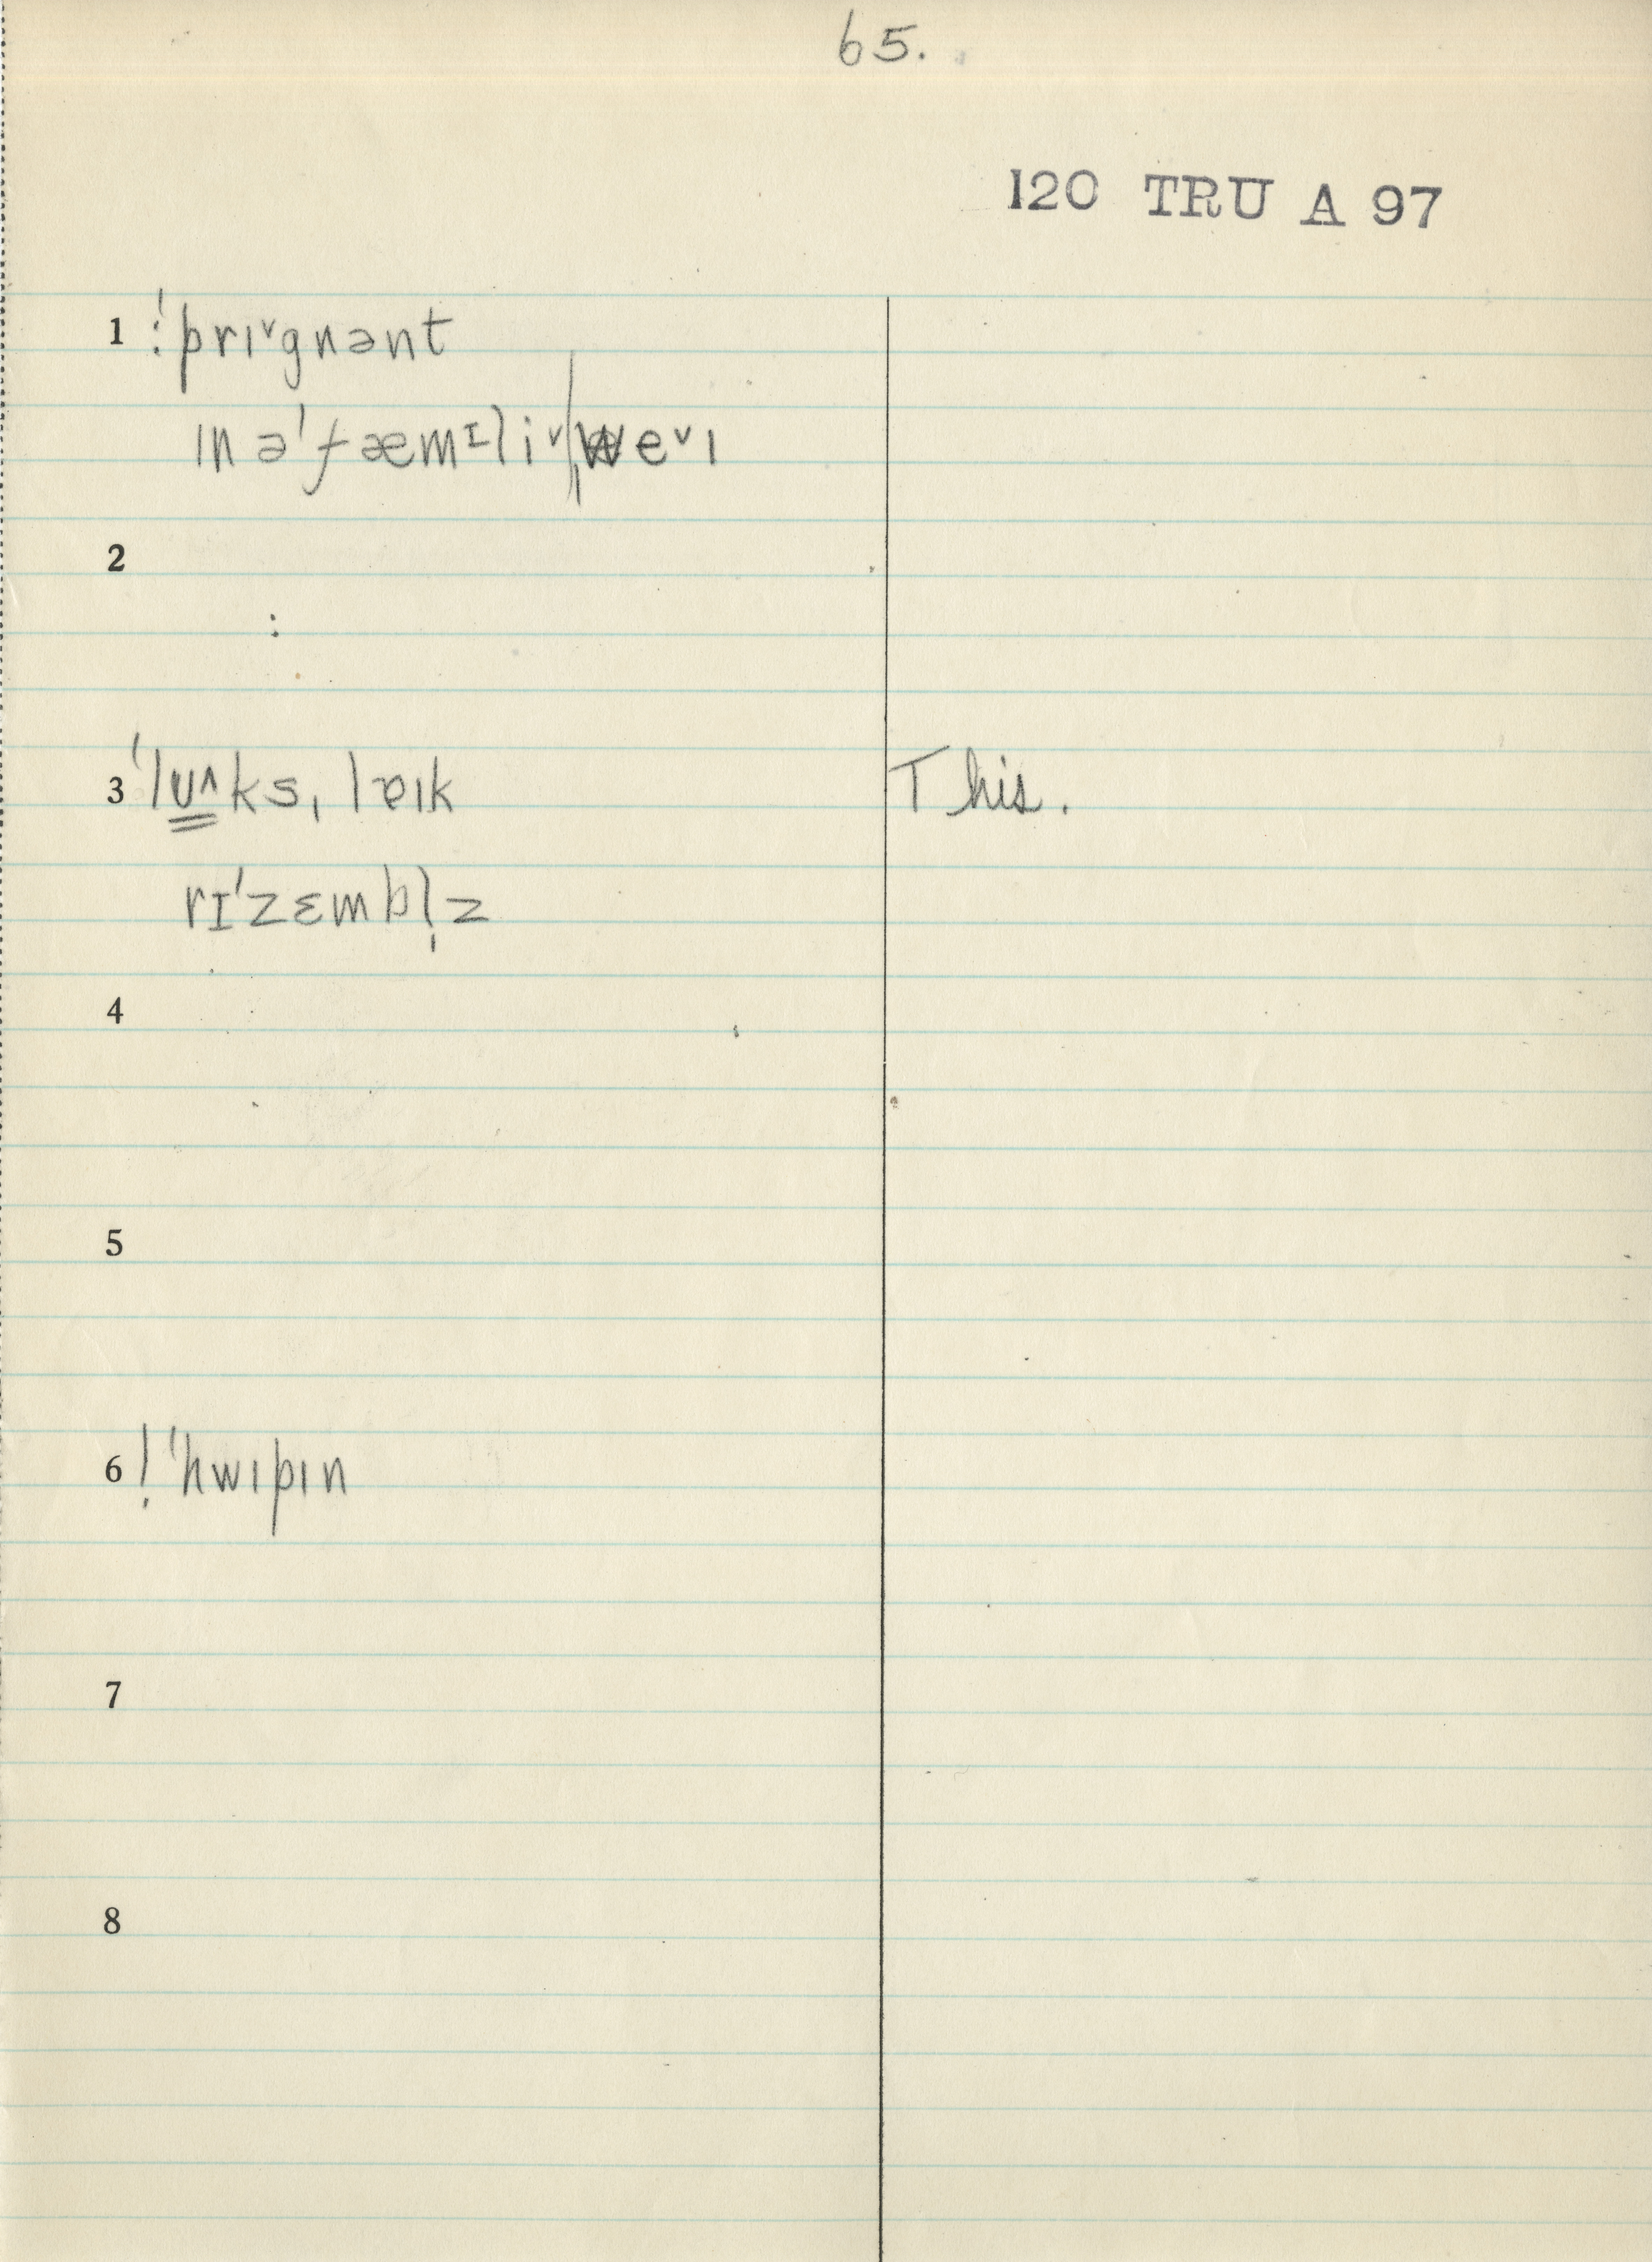 65.
120 TRU A 97
1 :ˈprɪ˅gnənt
ɪn əˈfæmɪli˅ˌwe˅ɪ
2
:
3 ˈlʊ^ksˌlɐɪk This.
rɪˈzɛmbl̩z
4
5
6 ! ˈhwɪpɪn
7
8